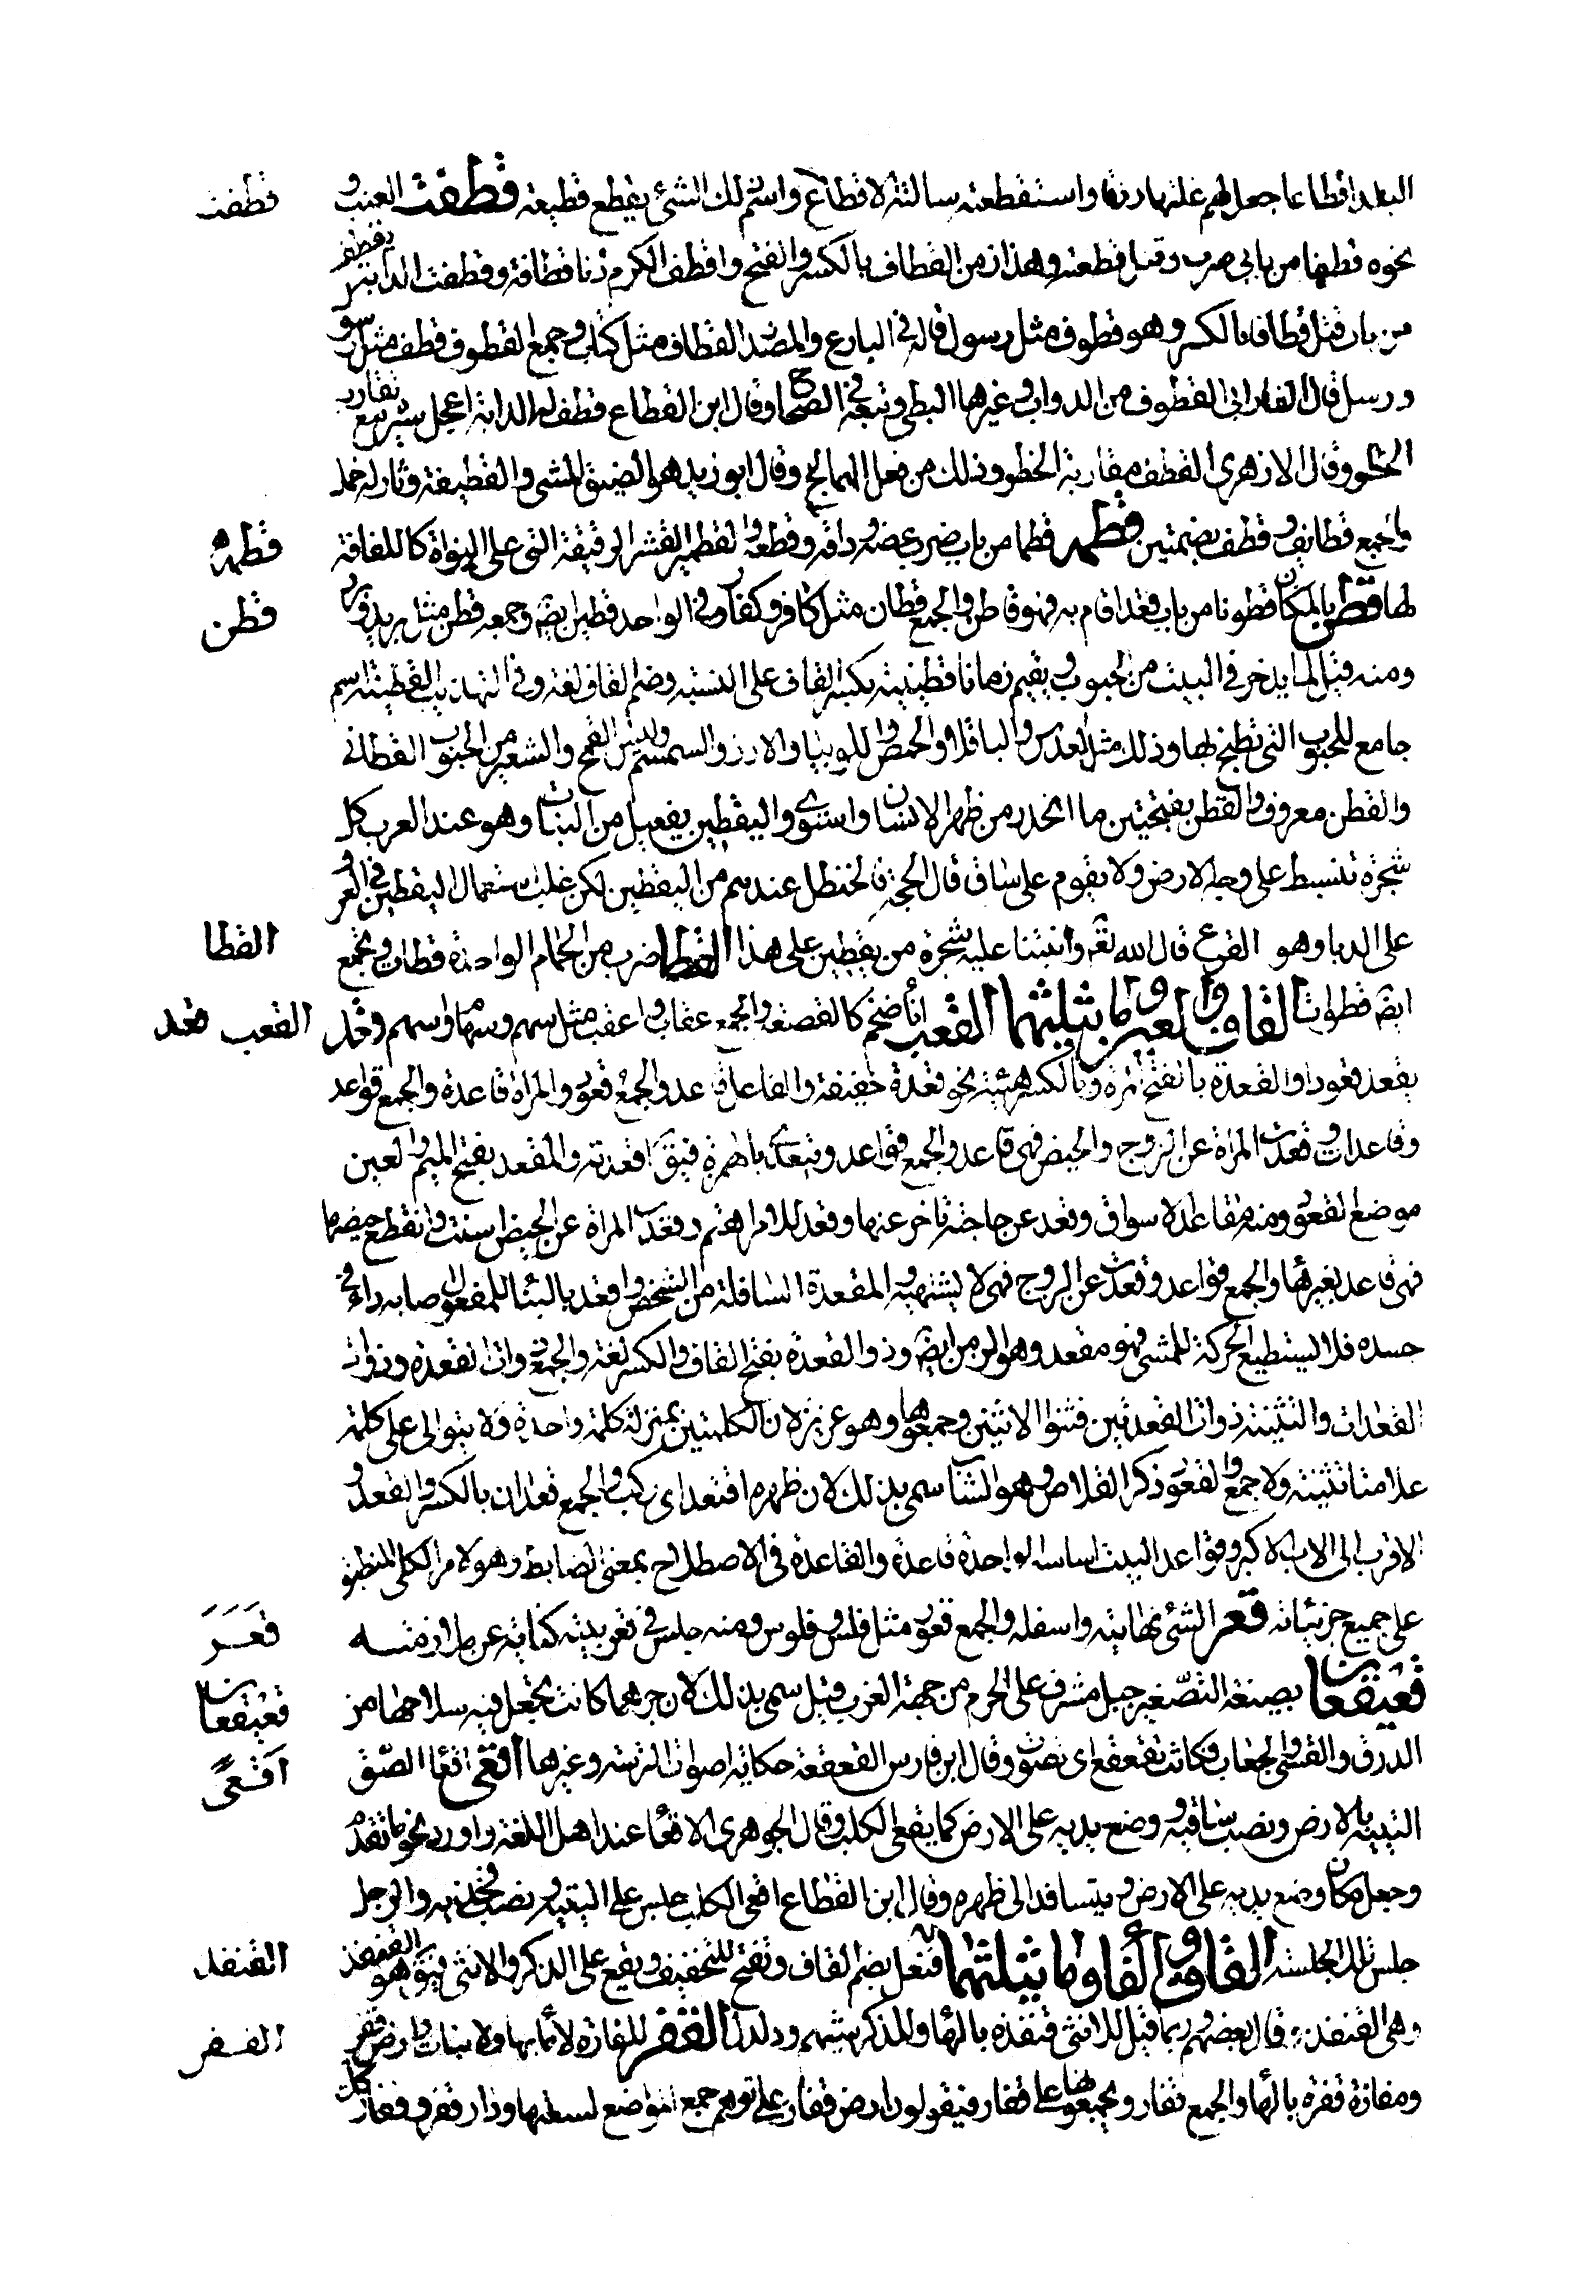 البلد اقطاعا جعل لهم غلتها رزقا واستقطعته سالته الاقطاع واسم ذلك الشئ يقطع قطيعة قطفت العنب و
قطفت
نحوه قطفا من بابي ضرب وقتل قطعته وهذا زمن القطاف بالكسر والفتح واقطف الكرم دنا قطافه وقطفت الدابة يقطف
من باب قتل قطافا بالكسر وهو قطوف مثل رسول قاله في البارع والمصدر القطاف مثل كتاب وجمع القطوف قطف مثل رسول
ورسل قال الفارابي القطوف من الدواب وغيرها البطي وتبعه في الصحاح وقال ابن القطاع قطف الدابة اعجل سيره مع تقارب
الخطو وقال الازهري القطف مقاربة الخطو وذلك من فعل الهمالج وقال ابو زيد هو الضيق المشي والقطيفة دثار له خمل
والجمع قطائف وقطف بضمتين قطمه قطما من باب ضرب عضه وذاقه وقطعه والقطمير القشرة الرقيقة التي على النواة كاللفافة
قطمه
لها قطن بالمكان قطونا من باب قعد اقام به فهو قاطن والجمع قطان مثل كافر وكفار وفي الواحد قطين ايضا وجمعه قطن مثل بريد وبرد
قطن
ومنه قيل لما يدخر في البيت من الحبوب ويقيم زمانا قطنية بكسر القاف على النسبة وضم القاف لغة وفي التهذيب القطنية اسم
جامع للحبوب التي تطبخ لها وذلك مثل العدس والباقلا والحمص واللوبيا والارز والسمسم وليس القمح والشعير من الحبوب القطاني
والقطن معروف والقطن بفتحتين ما انحدر من ظهر الانسان واستوى واليقطين يفعيل من النبات وهو عند العرب كل
شجرة تنبسط على وجه الارض ولا يقوم على ساق قال الحجة فالحنظل عندهم من اليقطين لكن غلب استعمال اليقطين في العرف
على الدبا وهو القرع قال الله تعالى وانبتنا عليه شجرة من يقطين على هذا القطا ضرب من الحمام الواحدة قطاة ويجمع
القطا
ايضا قطوات القاف والعين وما يثلثهما القعب اناء ضخم كالقصعة والجمع عقاب واعقب مثل سهم وسهام واسهم وقعد
القعب قعد
يقعد قعودا والقعدة بالفتح المرة وبالكسر هيئة نحو قعدة خفيفة والفاعل قاعد والجمع قعود والمراة قاعدة والجمع قواعد
وقاعدات وقعدت المراة عن الزوج والحيض فهي قاعد والجمع قواعد ويتعدى بالهمزة فيقال اقعدته والمقعد بفتح الميم والعين
موضع القعود ومنه مقاعد الاسواق وقعد عن حاجته تاخر عنها وقعد للامر اهتم وقعدت المراة عن الحيض اسنت وانقطع حيضها
فهي قاعد بغير هاء والجمع قواعد وقعدت عن الزوج فهي لا يشتهيه والمقعدة السافلة من الشخص واقعد بالبناء للمفعول اصابه داء في
جسده فلا يستطيع الحركة للمشي فهو مقعد وهو الزمن ايضا وذو القعدة بفتح القاف والكسر لغة والجمع ذوات القعدة وذوات
القعدات والتثنية ذواتا القعدتين فثنوا الاثنين وجمعوهما وهو عزيز لان الكلمتين بمنزلة كلمة واحدة ولا يتوالى على كلمة
علامتا تثنية ولا جمع والقعود ذكر القلاص وهو الشاب سمي بذلك لان ظهره اقتعد اي ركب والجمع قعدان بالكسر والقعدد
الاقرب الى الاب الاكبر وقواعد البيت اساسه الواحدة قاعدة والقاعدة في الاصطلاح بمعنى الضابط وهو الامر الكلي المنطبق
على جميع جزئياته قعر الشئ نهايته واسفله والجمع قعور مثل فلس وفلوس ومنه جلس في قعر بيته كناية عن ملازمته
قعر
قعيقعان بصيغة التصغير جبل مشرف على الحرم من جهة الغرب وقيل سمي بذلك لان جرهما كانت يجعل فيه سلاحها من
قعيقعان
الدرق والقسي والجعاب فكانت تقعقع اي تصوت وقال ابن فارس القعقعة حكاية اصوات الترسة وغيرها اقعى اقعاء الصق
اقعى
اليتيه بالارض ونصب ساقيه ووضع يديه على الارض كما يقعي الكلب وقال الجوهري الاقعاء عند اهل اللغة واورد نحو ما تقدم
وجعل مكان وضع يديه على الارض ويتساند الى ظهره وقال ابن القطاع اقعى الكلب جلس على اليتيه ونصب فخذيه والرجل
جلس تلك الجلسة القاف والفاء وما يثلثهما قنفل بضم القاف وتفتح للتخفيف ويقع على الذكر والانثى فيقال هو القنفذ
القنفد
وهي القنفذ قال بعضهم وربما قيل للانثى قنفذة بالهاء وللذكر شيهم ودلدل القفر المفازة لا ماء بها ولا نبات وارض قفر
القفر
ومفازة قفرة بالهاء والجمع قفار ويجمعونها على قفار فيقولون ارض قفار على توهم جمع المواضع لسعتها ودار قفر وقفار كذلك